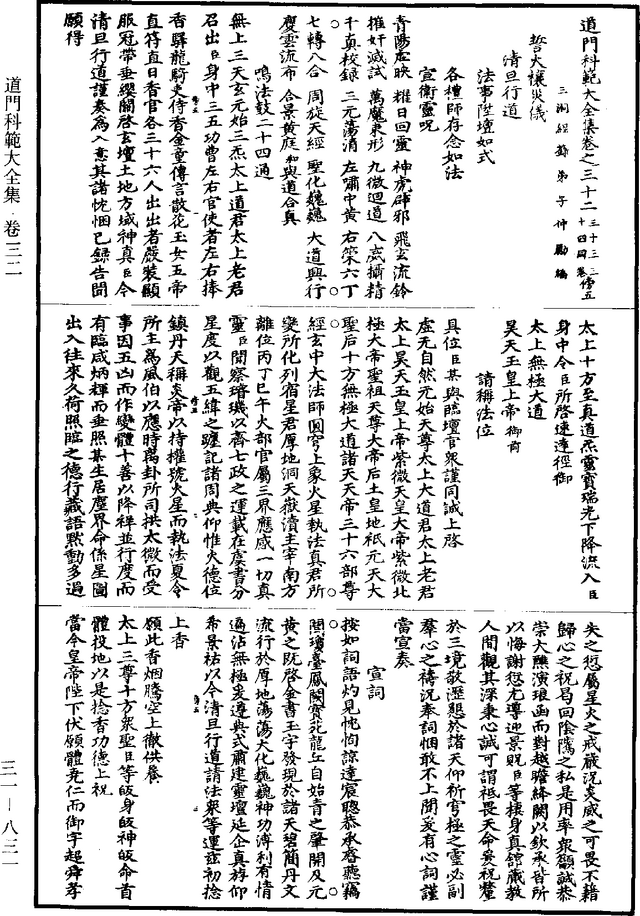 道門科範大全集卷之三十二 三十三三十四同卷 傳五
三洞經籙弟子仲勵編
誓火禳災儀
清旦行道
法事陞壇如式
各禮師存念如法
宣衛靈呪
青陽虛映 耀日回靈 神虎辟邪 飛玄流鈴
摧奸滅試 萬魔束形 九微迴道 八威攝精
千真校錄 三元蕩消 左肅中黃 右策六丁
七轉八合 周旋天經 聖化巍巍 大道興行
慶雲流布 合景黃庭 和與道合真
鳴法鼓二十四通
無上三天玄元始三炁太上道君太上老君
召出臣身中三五功曹左右官使者左右捧
香驛龍騎吏侍香金童傳言散花玉女五帝
直符直日香官各三十六人出出者嚴裝顯
服冠帶垂纓關啓玄壇土地方域神真臣今
清旦行道謹奏為入意其諸忱悃已錄告聞
願得
太上十方至真道炁靈寶瑞光下降流入臣
身中令臣所啓速達徑御
太上無極大道
昊天玉皇上帝御前
請稱法位
具位臣某與臨壇官衆謹同誠上啓
虛无自然元始天尊太上大道君太上老君
太上昊天玉皇上帝紫微天皇大帝紫微北
極大帝聖祖天尊大帝后土皇地祇元天大
聖后十方無極大道諸天天帝三十六部尊
經玄中大法師圓穹上象火星執法真君所
變所化列宿星君厚地洞天嶽瀆主宰南方
離位丙丁巳午火部官屬三界應感一切真
靈臣聞察璿璣以齊七政之運載在虞書分
星度以觀五緯之躔記諸周典仰惟火德位
鎮丹天稱炎帝以持權號火星而執法夏令
所主為風伯以應時萬卦所司拱太微而受
事因五凶而作變體十善以降祥並行度而
有臨咸炳輝而垂照某生居塵界命係星圖
出入往來久荷照臨之德行藏語黙動多過
失之愆屬星火之戒嚴況炎威之可畏不藉
歸心之祝曷回陰隲之私是用率衆顓誠恭
崇大醮演琅函而對越瞻絳闕以欽承皆所
以悔謝愆尤導迎景貺臣等棲身真舘職敎
人間觀其深秉心誠可謂祗畏天命爰祝釐
於三境敢瀝懇於諸天仰祈穹極之靈必副
羣心之禱況奉詞悃敢不上聞爰有心詞謹
當宣奏
宣詞
按如詞語灼見忱恂諒達宸聰恭承睿聽竊
聞瓊臺鳳闕寶苑龍丘自始青之肇開及元
黃之既啓金書玉字發現於諸天碧簡丹文
流行於厚地蕩蕩大化巍巍神功溥利有情
遍沾無極爰遵典式肅建靈壇延企真游仰
希景祐以今清旦行道請法衆等運茲初捻
上香
願此香烟騰空上徹供養
太上三尊十方衆聖臣等皈身皈神皈命首
體投地以是捻香功德上祝
當今皇帝陛下伏願體堯仁而御宇超舜孝
道門科範大全集·卷三二
三一—八三一